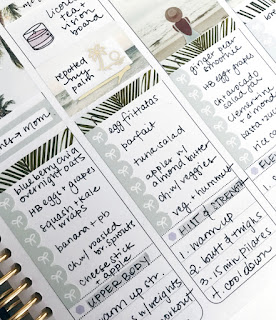 licorice
tea +
vision
board
her + mom
blueberry chia
overnight oats
HB egg + grapes
squash + kale
wraps
banana + pb
chx/ roasted
br. sprouts
cheesestick
+ apple
UPPER BODY
warm up
weights
workout
repotted
my
palm
egg frittatas
parfait
tuna salad
apples w/
almond butter
chx/ veggies
veg. hummus
HIIT & STRENGTH
1. warm up
2. butt & thighs
3. 15 min pilates
4. cool down
ginger pear
smoothie
HB egg + grapes
chx avocado
salad
clementine
& almonds